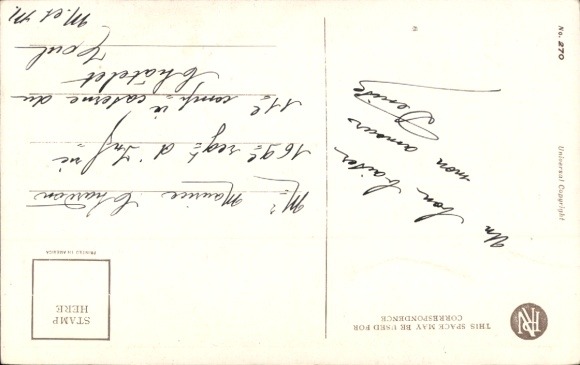 THIS SPACE MAY BE USED FOR
CORRESPONDENCE
STAMP
HERE
PRINTED IN AMERICA
Un bon baiser
mon amour
Denise
Mr Maurice Chardon
169e regt d'Infie
11e compie caserne du
Châtelet
Toul
M. et M.
No. 270
Universal Copyright